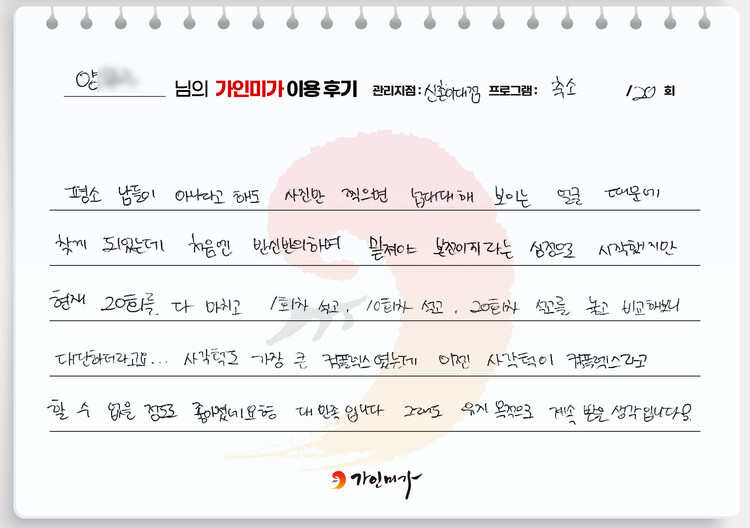 양 님의 가인미가 이용 후기 관리지점 : 신촌이대점 프로그램 : 축소 / 20 회
평소 남들이 아니라고 해도 사진만 찍으면 넙대대해 보이는 얼굴 때문에
찾게 되었는데 처음엔 반신반의하며 밑져야 본전이지라는 심정으로 시작했지만
현재 20회를 다 마치고 1회차 석고, 10회차 석고, 20회차 석고를 놓고 비교해보니
대단하더라고요... 사각턱도 가장 큰 컴플렉스였는데 이젠 사각턱이 컴플렉스라고
할 수 없을 정도로 좋아졌네요 대만족입니다 그래도 유지 목적으로 계속 받을 생각입니다
가인미가